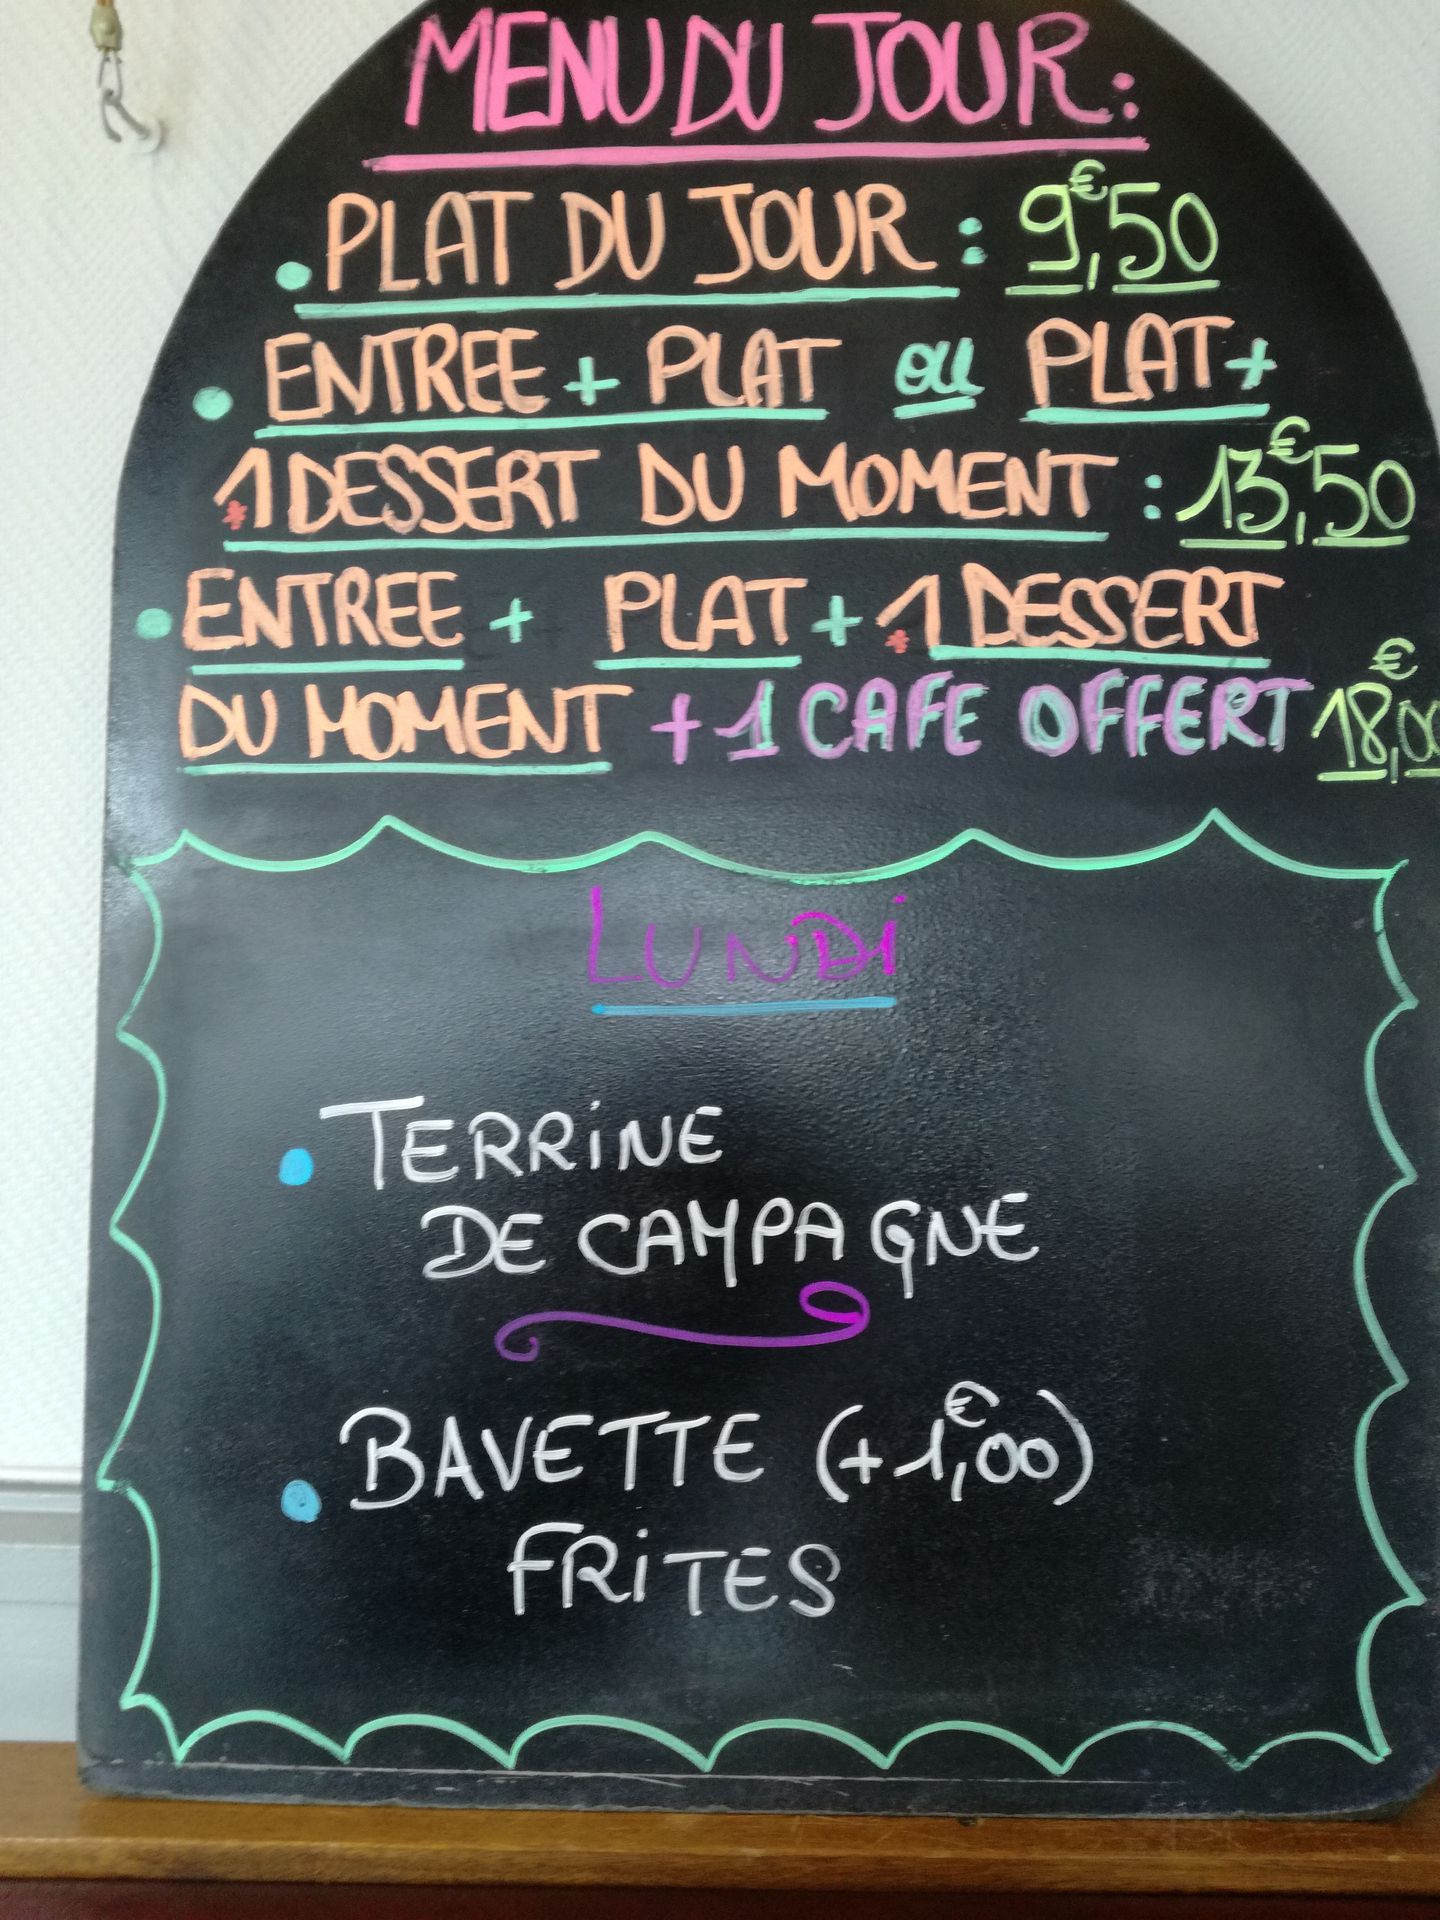 MENU DU JOUR:
• PLAT DU JOUR : 9€,50
• ENTREE + PLAT ou PLAT +
*1 DESSERT DU MOMENT : 13€,50
• ENTREE + PLAT + *1 DESSERT
DU MOMENT + 1 CAFE OFFERT 18€,00
LUNDi
• TERRiNE
DE CAMPAGNE
• BAVETTE (+1€,00)
FRiTES